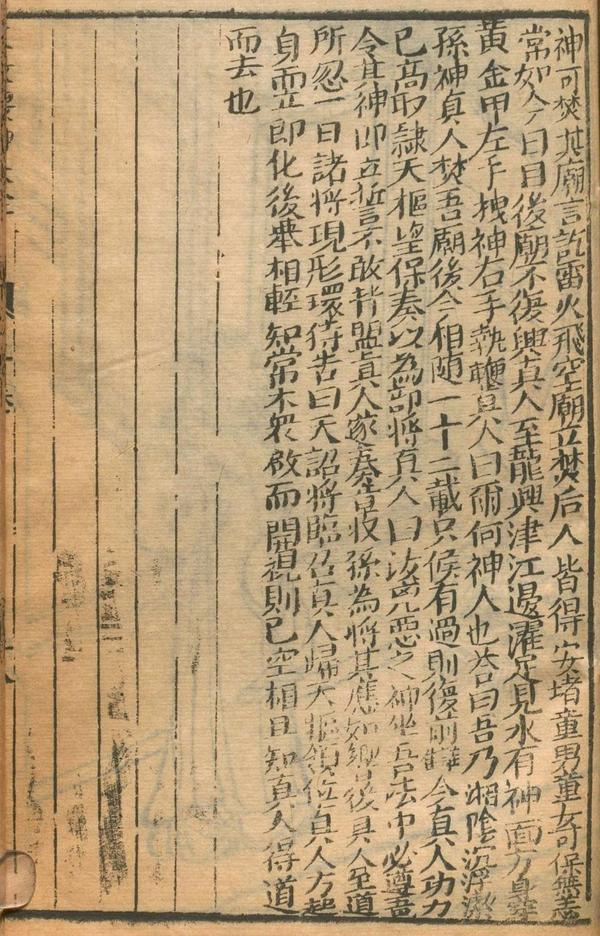 神可焚其廟言訖雷火飛空廟立焚后人皆得安堵童男童女可保無恙
常如今日日後廟不復興真人至龍興津江邊濯足見水有神面方身穿
黃金甲左手拽神右手執鞭真人曰爾何神人也荅曰吾乃湘陰沉浮
孫神真人焚吾廟後今相隨一十二載只候有過則復前讎今真人功力
已高取隸天樞望保奏以為部將真人曰汝兇惡之神坐吾法中必遵吾
令其神即立誓言不敢背盟真人遂奏帝收孫為將其應如響後真人至道
所忽一日諸將現形環侍告曰天詔將臨召真人歸天樞領位真人方起
身而立即化後舉相輕知常木衆啟而開視則已空相日知真人得道
而去也